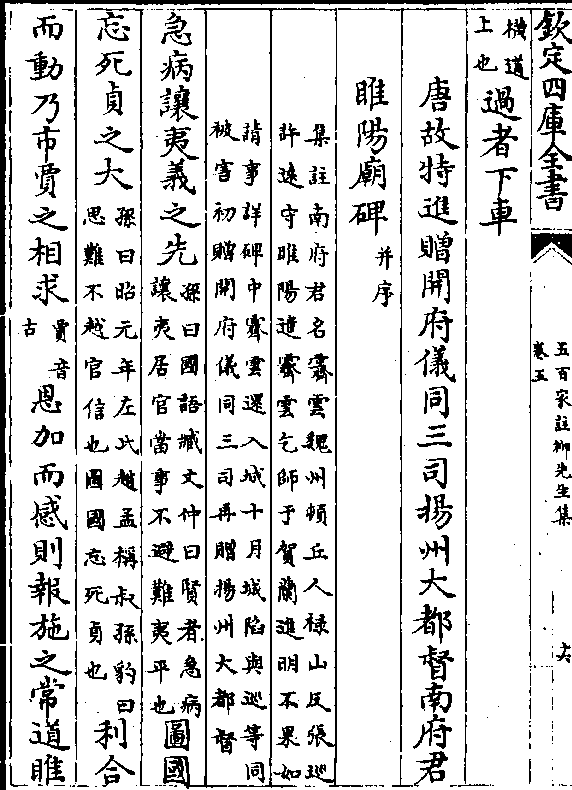 欽定四庫全書
五百家註柳先生集
卷五
十六
橫道
上也過者下車
唐故特進贈開府儀同三司揚州大都督南府君
睢陽廟碑并序
集註南府君名霽雲魏州頓丘人祿山反張巡
許遠守睢陽遣霽雲乞師于賀蘭進明不果如
請事詳碑中霽雲還入城十月城陷與巡等同
被害初贈開府儀同三司再贈揚州大都督
急病讓夷義之先孫曰國語臧文仲曰賢者急病
讓夷居官當事不避難夷平也圖國
忘死貞之大孫曰昭元年左氏趙孟稱叔孫豹曰
思難不越官信也圖國忘死貞也利合
而動乃市賈之相求賈音
古恩加而感則報施之常道睢